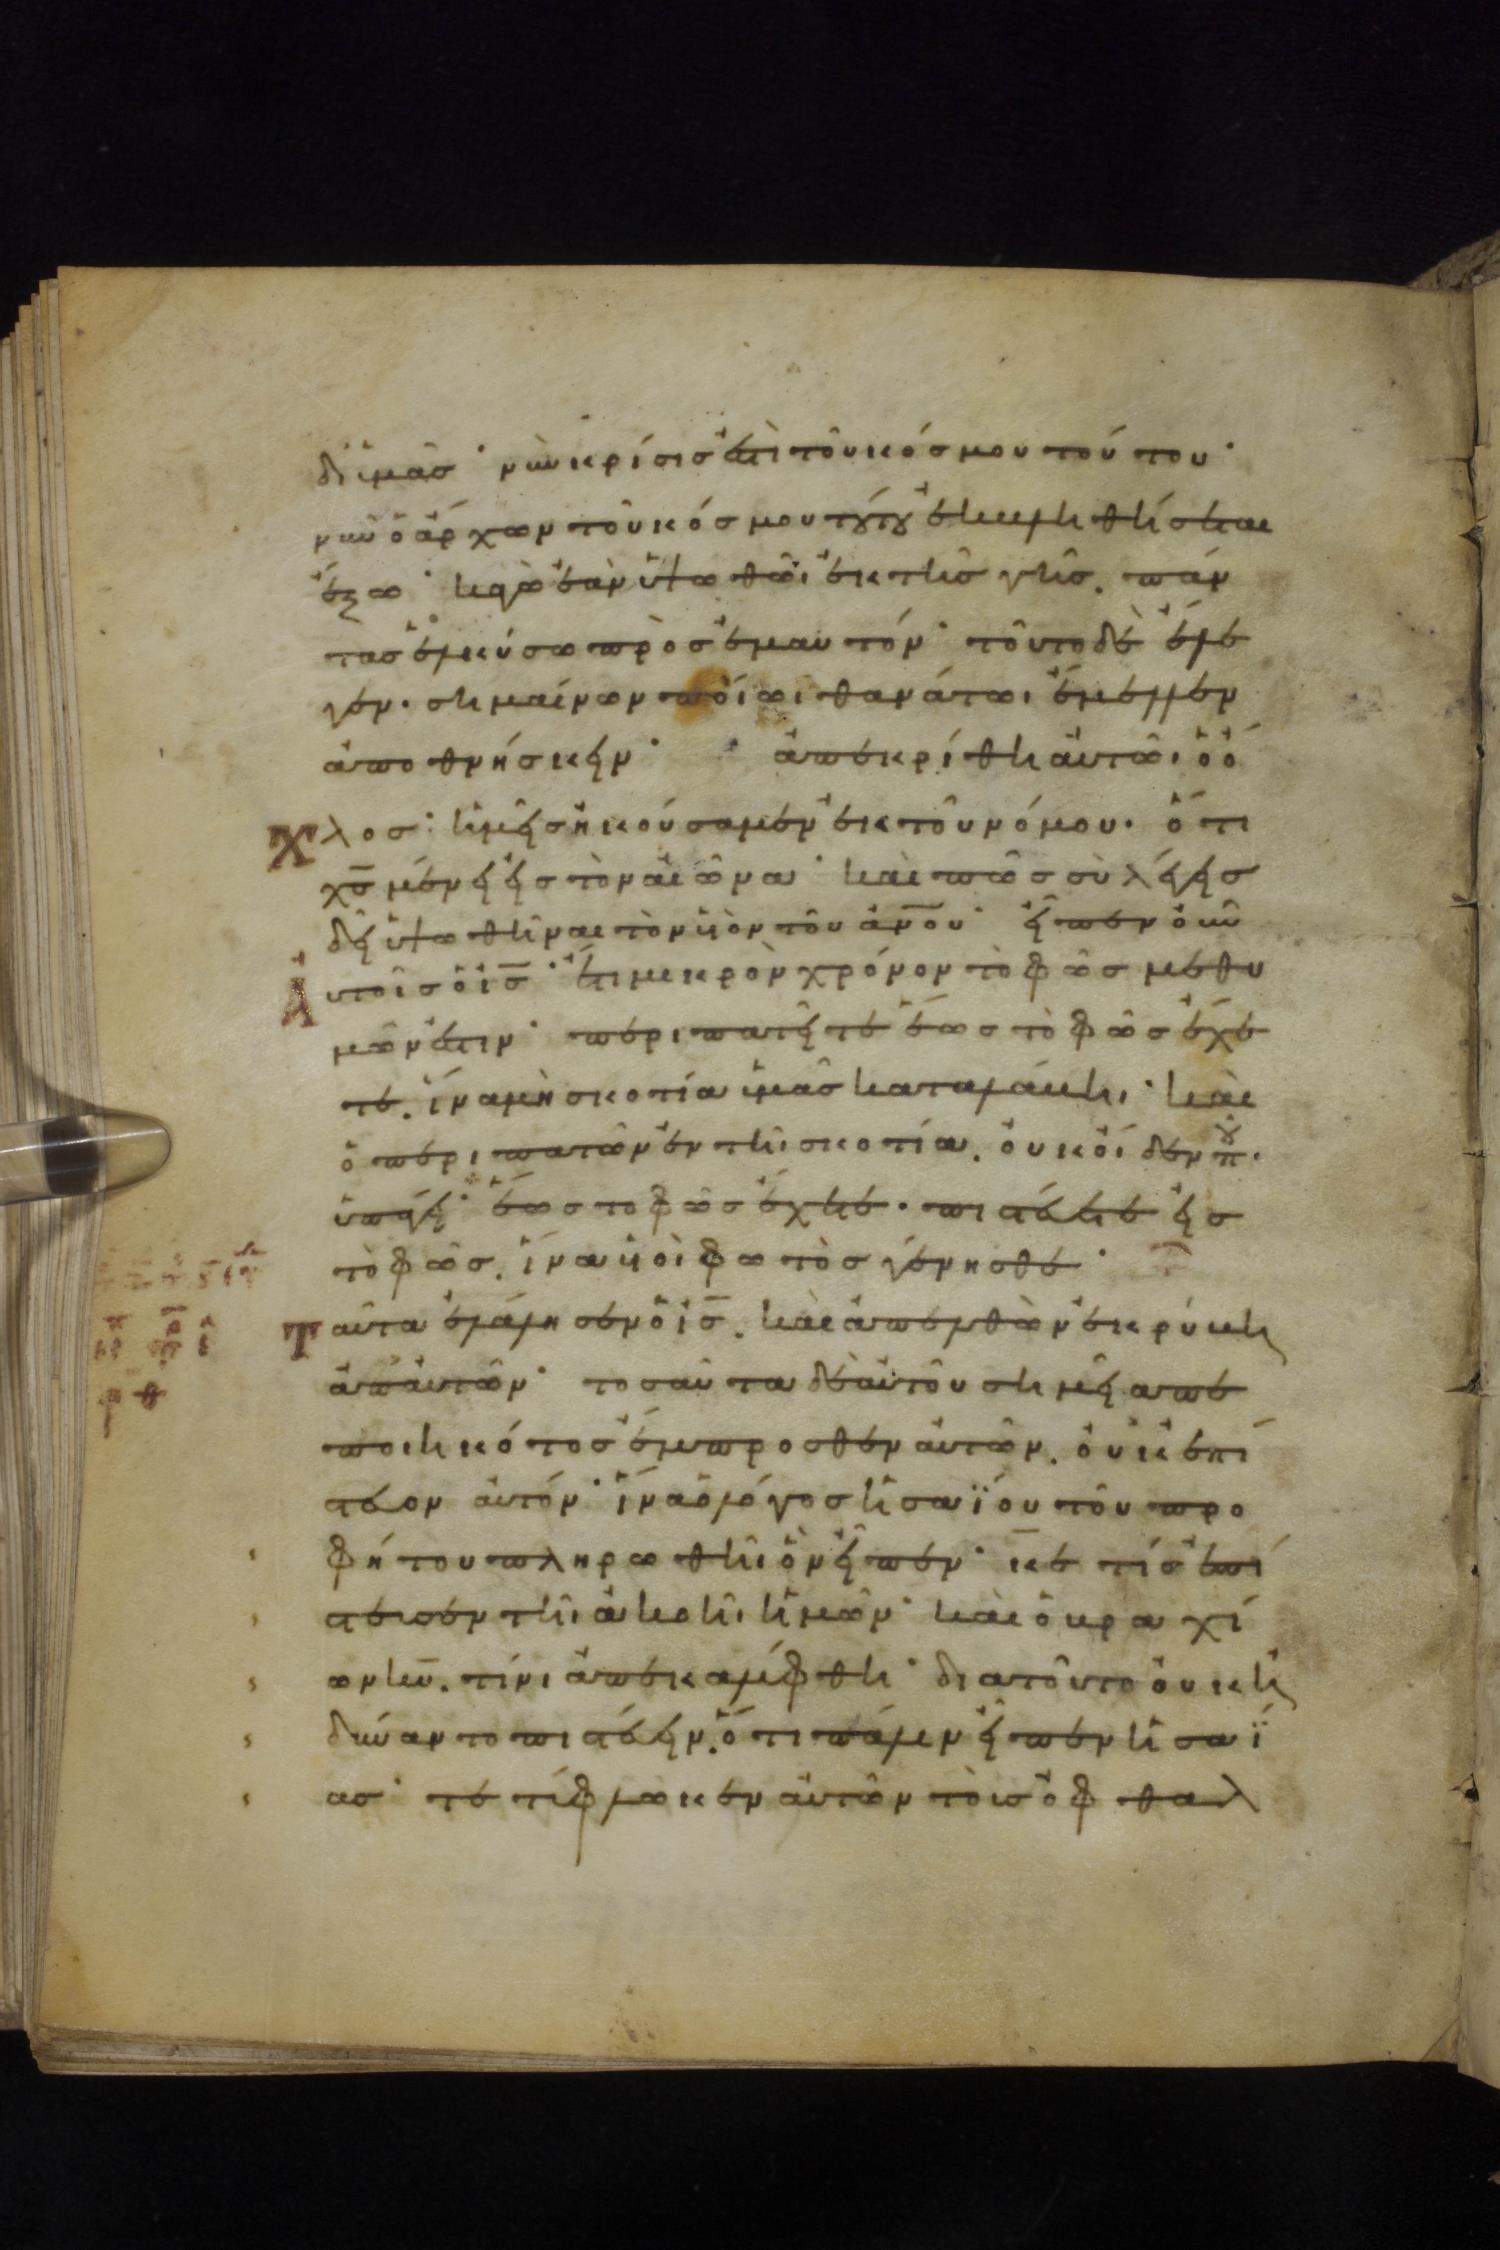 δι ὑμᾶσ· νῦν κρίσισ ἐστὶ τοῦ κόσμου τούτου·
νῦν ὁ ἄρχων τοῦ κόσμου τούτου ἐκβληθήσεται
ἔξω· κἀγὼ ἐὰν ὑψωθῶι ἐκ τῆσ γῆσ. πάν
τασ ἑλκύσω πρὸσ ἐμαυτόν· τοῦτο δὲ ἔλε
γεν. σημαίνων ποίωι θανάτωι ἔμελλεν
ἀποθνήσκειν· ἀπεκρίθη αὐτῶι ὁ ὄ
χλοσ· ἡμεῖσ ἠκούσαμεν ἐκ τοῦ νόμου. ὅτι
χ̅σ̅ μένει εἰσ τὸν αἰῶνα· καὶ πῶσ σὺ λέγεισ
δεῖ ὑψωθῆναι τὸν υἱὸν τοῦ ἀν̅ο̅υ· εἶπεν οὖν
αὐτοῖσ ὁ ι̅σ̅· ἔτι μικρὸν χρόνον τὸ φῶσ μεθ υ
μῶν ἐστιν· περιπατεῖτε ἕωσ τὸ φῶσ ἔχε
τε. ἵνα μὴ σκοτία ὑμᾶσ καταλάβηι· καὶ
ὁ περιπατῶν ἐν τῆι σκοτία. οὐκ οἶδεν π̅ου̅.
ὑπάγει· ἕωσ το φῶσ ἔχητε. πιστεύετε εἰσ
τὸ φῶσ. ἵνα υἱοὶ φωτὸσ γένησθε·
Ταῦτα ἐλάλησεν ὁ ι̅σ̅. καὶ ἀπελθὼν ἐκρύβη
ἀπ αὐτῶν· τοσαῦτα δὲ αὐτοῦ σημεῖα πε
ποιηκότοσ ἔμπροσθεν αὐτῶν. οὐκ ἐπί
στευον αὐτόν· ἵνα ὁ λόγοσ ἡσαΐου τοῦ προ
φήτου πληρωθῆι ὃν εἶπεν· κ̅ε τίσ ἐπί
στευσεν τῆι ἀκοῆι ἡμῶν· καὶ ὁ βραχί
ων κ̅υ̅. τίνι ἀπεκαλύφθη· δια τοῦτο οὐκ ἠ
δύναντο πιστεύειν. ὅτι πάλιν εἶπεν ἡσαΐ
ασ· τετύφλωκεν αὐτῶν τοὺσ ὀφθαλ